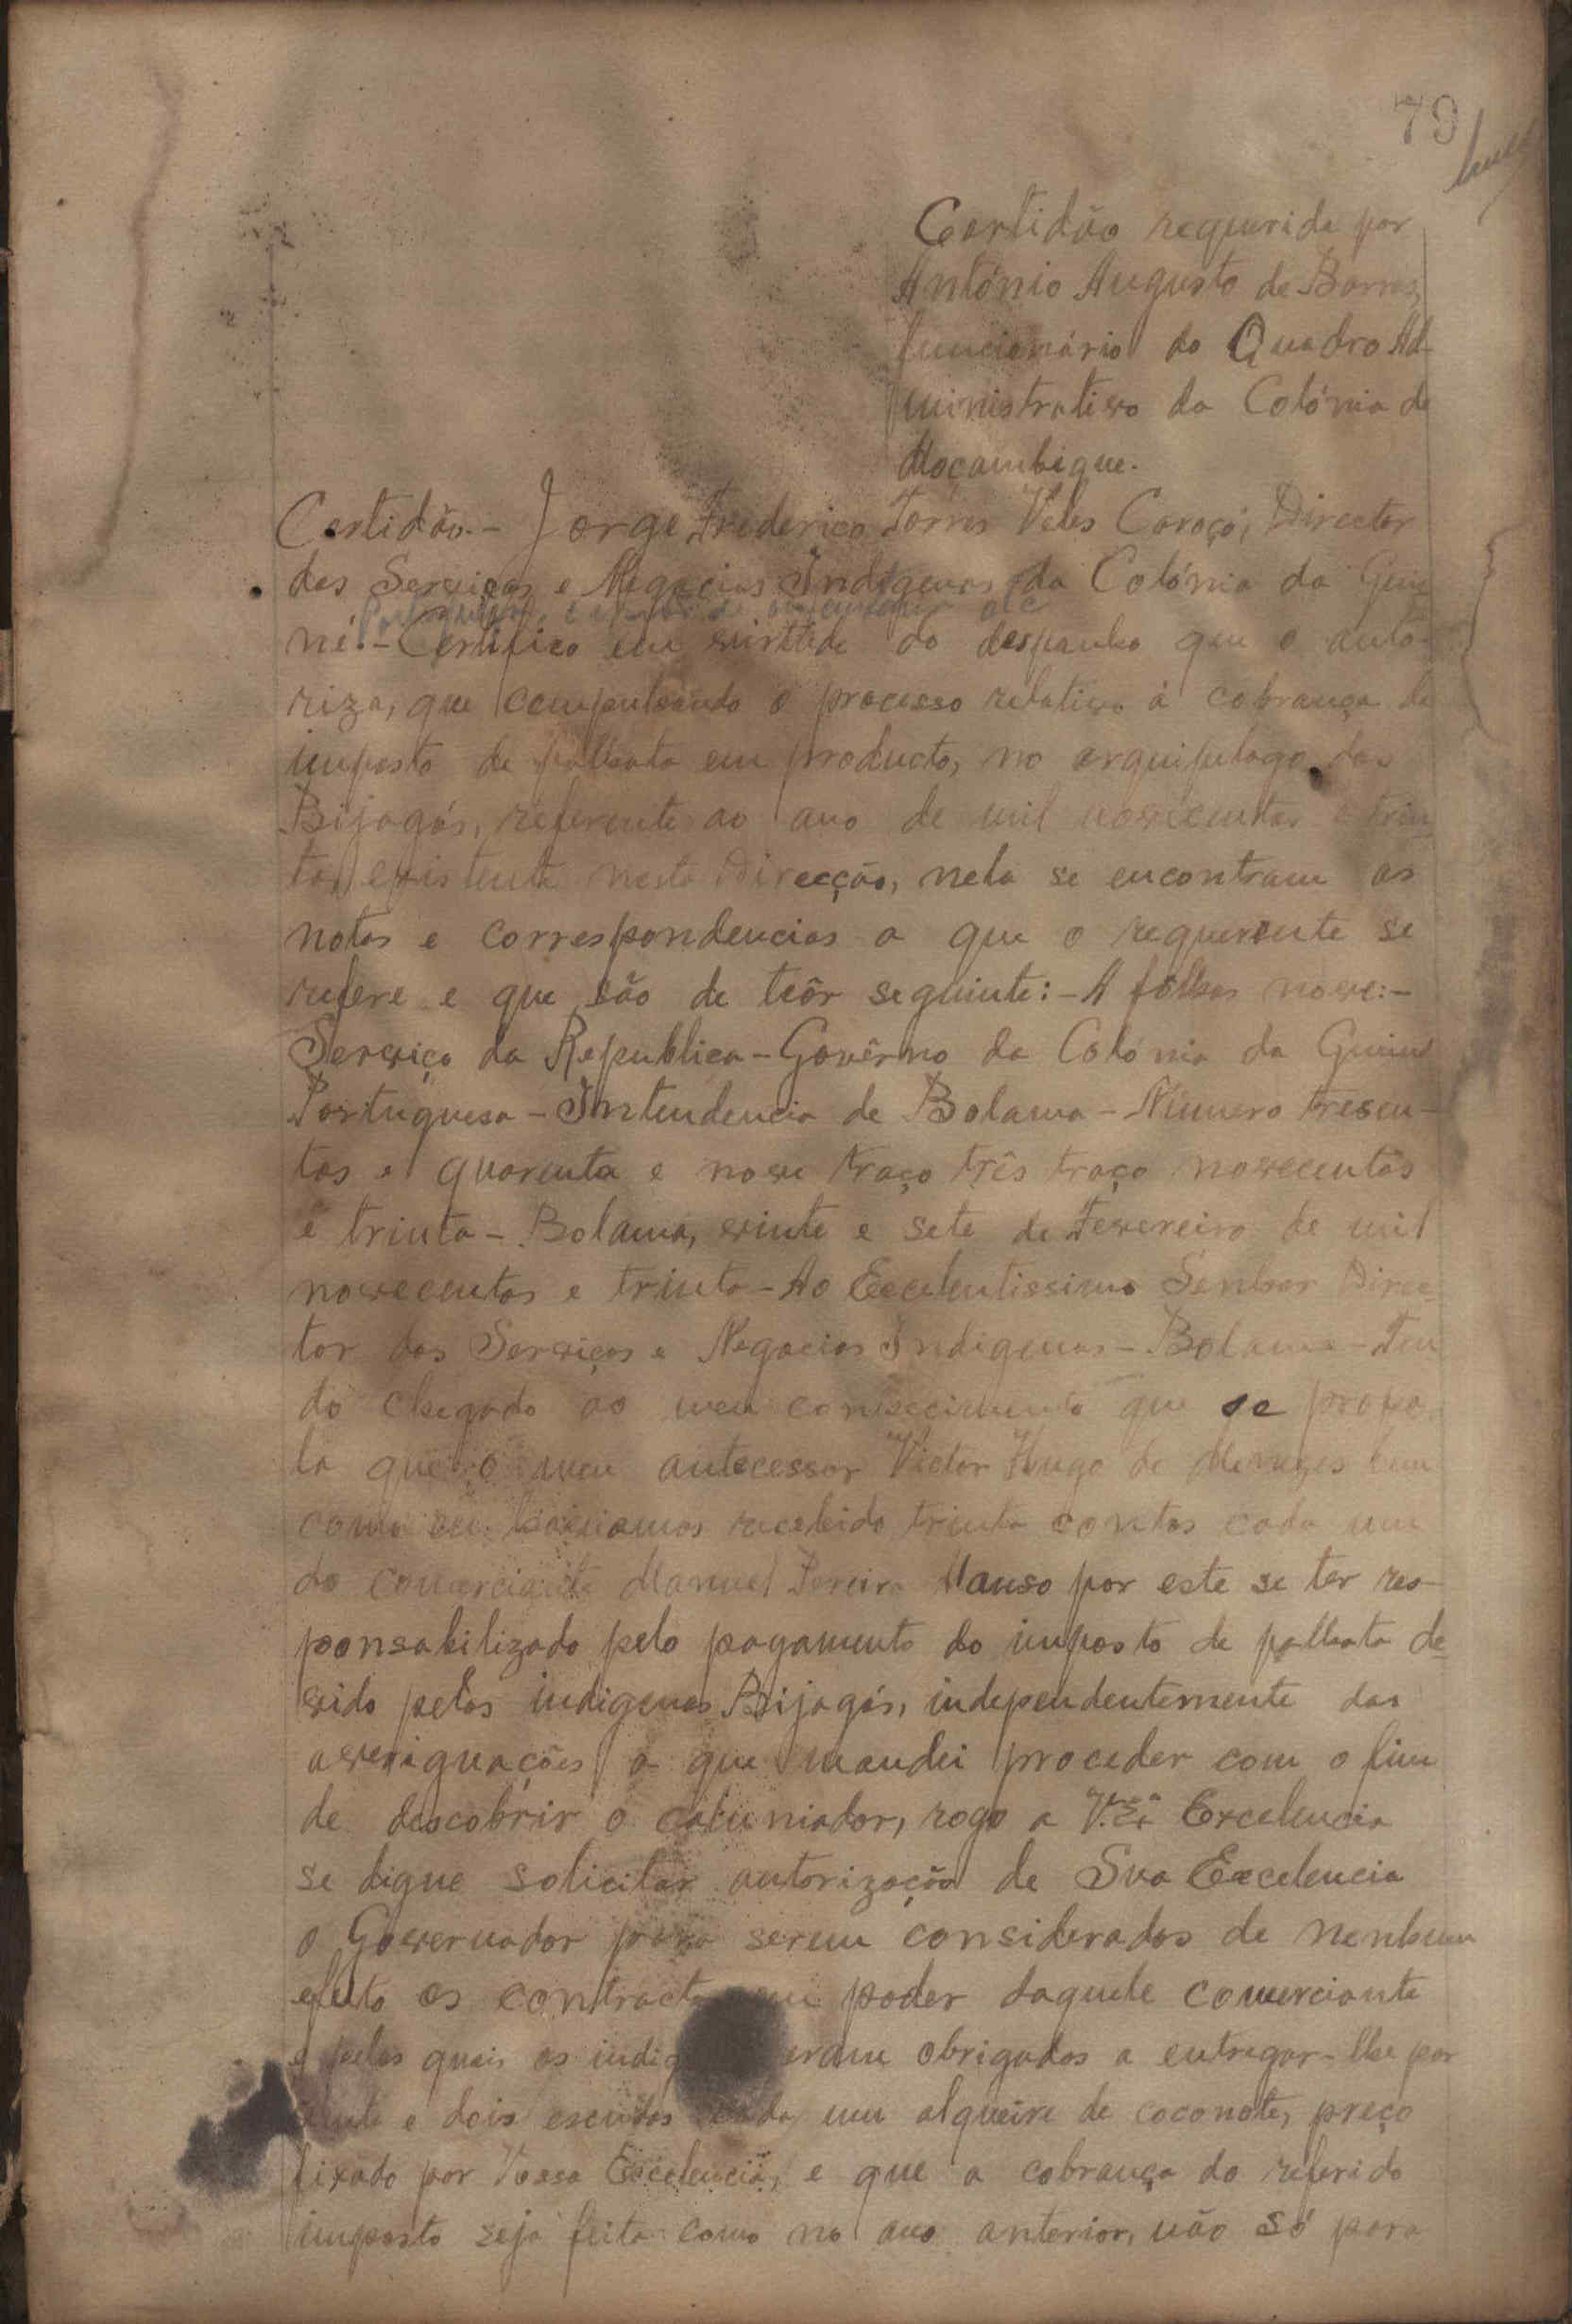 79
Certidão requerida por
António Augusto de Barros,
funcionário do Quadro Ad-
ministrativo da Colónia de
Moçambique.
Certidão.- Jorge Frederico Torres Veles Caroço, Director
dos Serviços e Negocios Indigenas da Colónia da Gui-
né.- Certifico em virtude do despacho que o auto-
riza, que compulsando o processo relativo á cobrança do
imposto de palhota em producto, no arquipelago dos
Bijagós, referente ao ano de mil novecentos e trin-
ta, existente nesta Direcção, nela se encontram as
notas e correspondencias a que o requerente se
refere e que são de teôr seguinte:- A fôlhas nove:-
Serviço da Republica - Govêrno da Colónia da Guiné
Portuguesa - Intendencia de Bolama - Número tresen-
tos e quarenta e nove traço três traço novecentos
e trinta - Bolama, vinte e sete de Fevereiro de mil
novecentos e trinta - Ao Excelentissimo Senhor Direc-
tor dos Serviços e Negocios Indigenas - Bolama - Ten-
do chegado ao meu conhecimento que se propa-
la que o meu antecessor Victor Hugo de Menezes bem
como eu haviamos recebido trinta contos cada um
do comerciante Manuel Pereira Manso por este se ter res-
ponsabilizado pelo pagamento do imposto de palhota de-
vido pelos indigenas Bijagós, independentemente das
averiguações a que mandei proceder com o fim
de descobrir o caluniador, rogo a Excelencia
se digne solicitar autorização de Sua Excelencia
o Governador para serem considerados de nenhum
efeito os contractos em poder daquele comerciante
e pelos quais os indig eram obrigados a entregar-lhe por
e dois escudos cada um alqueire de coconote, preço
fixado por Vossa Excelencia, e que a cobrança do referido
imposto seja feita como no ano anterior, não só para